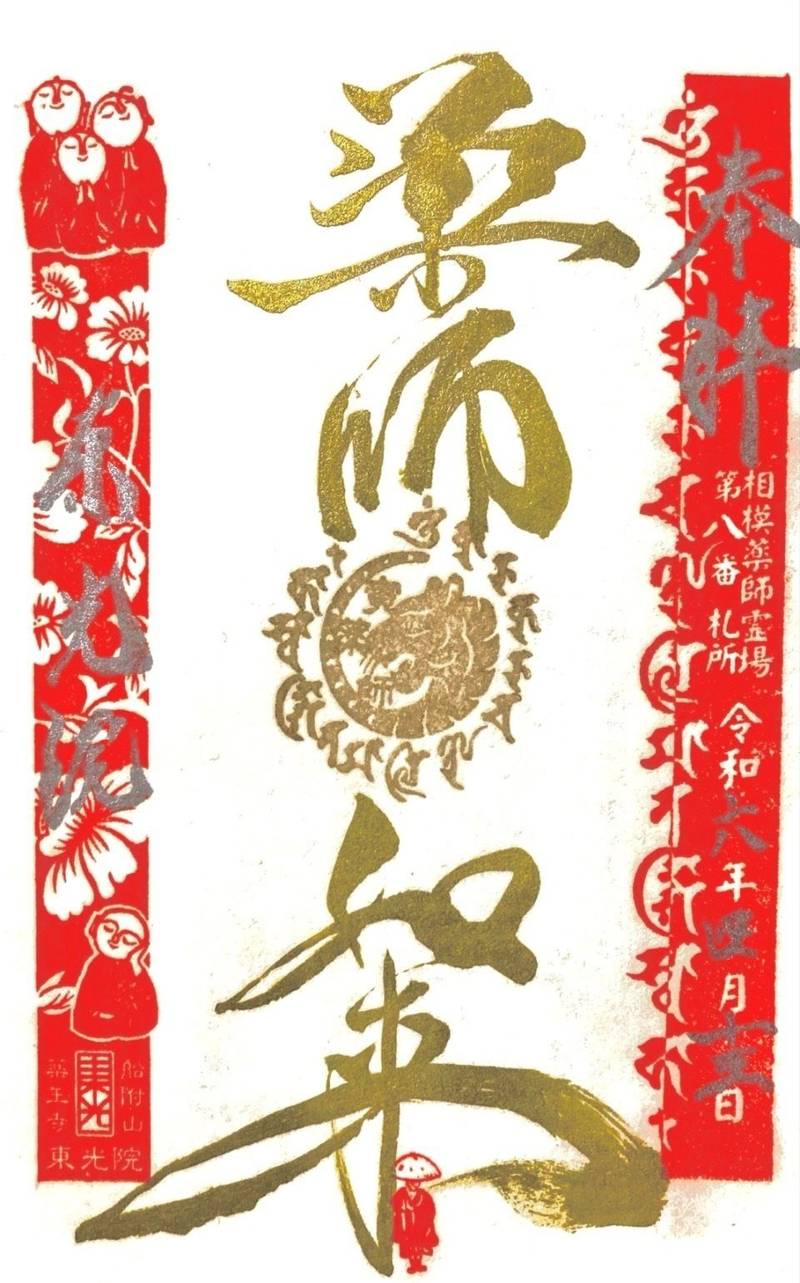 奉拝
相模薬師霊場
第八番札所
令和六年四月十三日
薬師如来
東光院
船附山
薬王寺
東光院